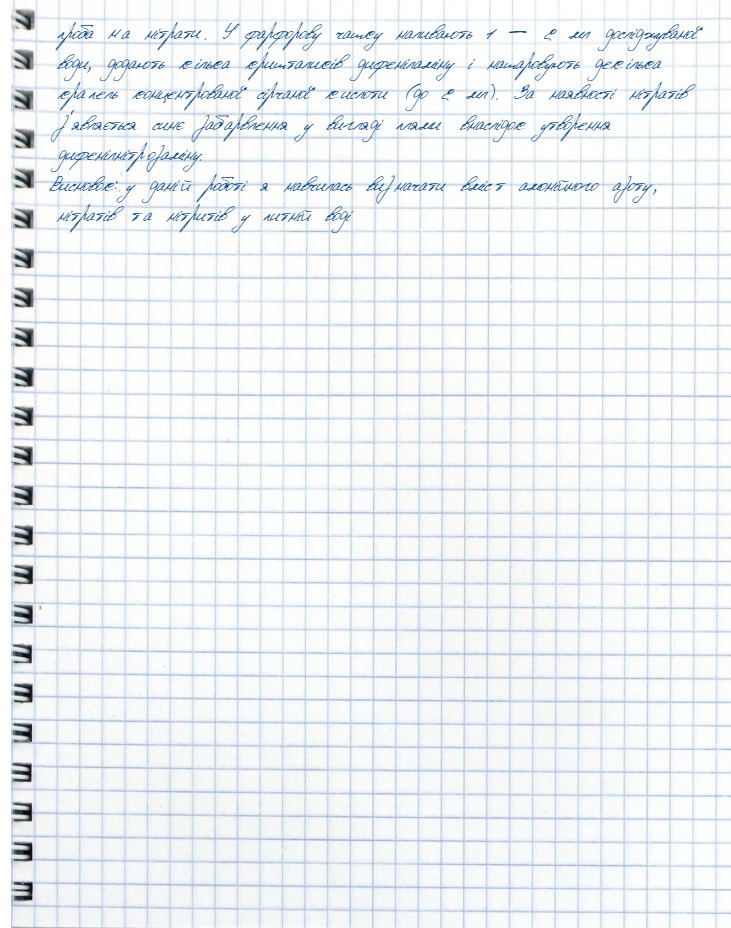 проба на нітрати. У фарфорову чашку наливають 1 — 2 мл досліджуваної
води, додають кілька кришталисів дифеніламіну і нашаровують декілька
крапель концентрованої сірчаної кислоти (до 2 мл). За наявності нітратів
з'являється синє забарвлення у вигляді плями внаслідок утворення
дифенілнітрозаміну.
Висновок: у даній роботі я навчилась визначати вміст амонійного азоту,
нітратів та нітритів у питній воді